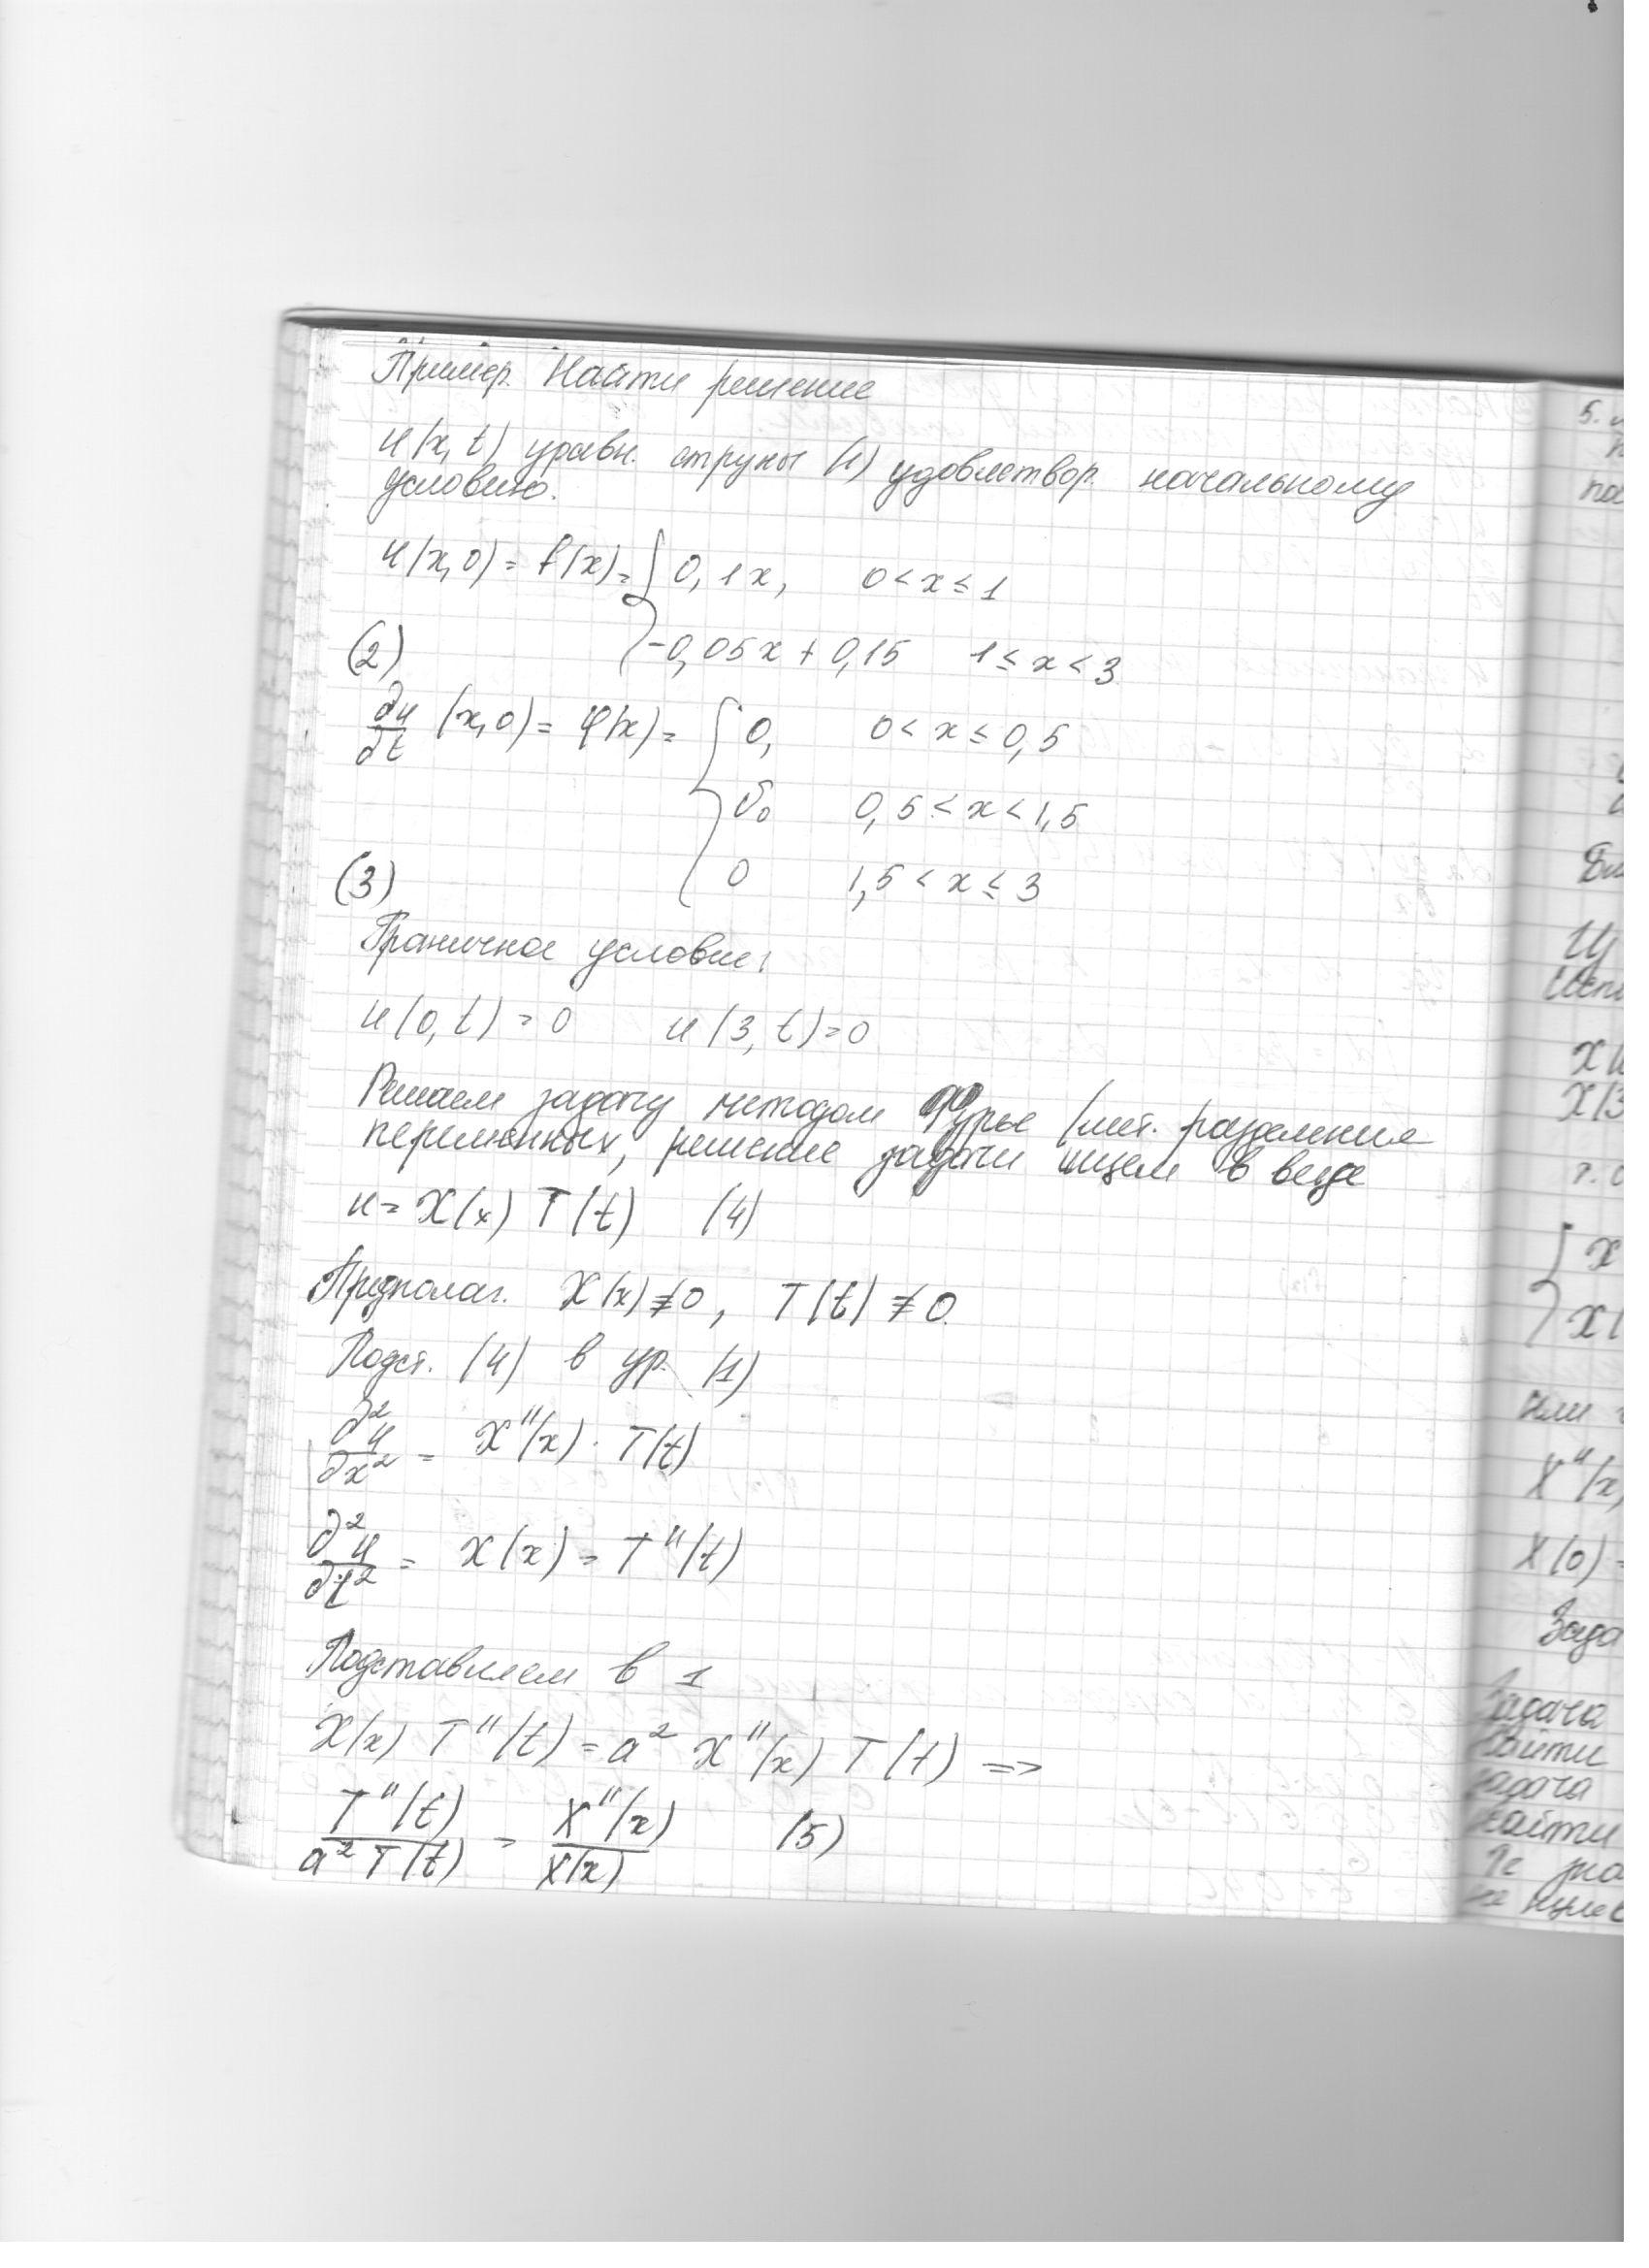 Пример. Найти решение
u(x, t) уравн. струны (1) удовлетвор. начальному
условию.
u(x,0) = f(x) = { 0,1x, 0 < x ≤ 1
-0,05x + 0,15 1 ≤ x < 3
(2)
∂u/∂t (x,0) = φ(x) = { 0, 0 < x ≤ 0,5
v₀ 0,5 < x < 1,5
0 1,5 < x ≤ 3
(3)
Граничное условие:
u(0, t) = 0 u(3, t) = 0
Решаем задачу методом Фурье (мет. разделения
переменных, решение задачи ищем в виде
u = X(x) T(t) (4)
Предполаг. X(x) ≠ 0, T(t) ≠ 0.
Подст. (4) в ур. (1)
∂²u/∂x² = X''(x) · T(t)
∂²u/∂t² = X(x) = T''(t)
Подставляем в 1
X(x) T''(t) = a² X''(x) T(t) =>
T''(t)/a² T(t) = X''(x)/X(x) (5)
5.
X''(x)
X(0) =
Задача
Найти
задача
Найти